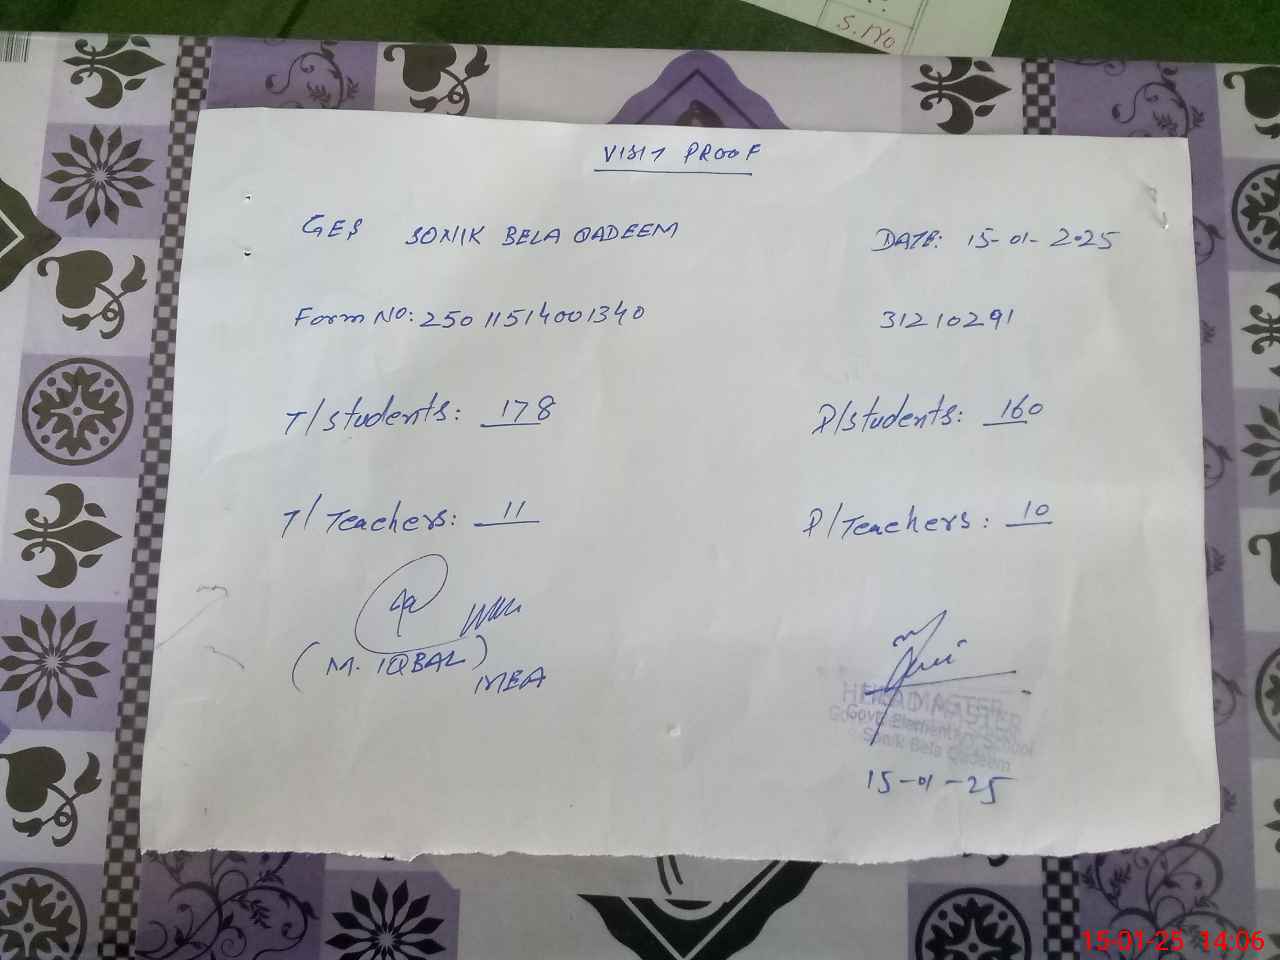 S.No
VISIT PROOF
GES SONIK BELA QADEEM DATE: 15-01-2025
Form No: 25011514001340 31210291
T/Students: 178 P/Students: 160
T/Teachers: 11 P/Teachers: 10
(M. IQBAL)
MEA
HEAD MASTER
Govt: Elementary School
Sonik Bela Qadeem
15-01-25
15-01-25 14:06